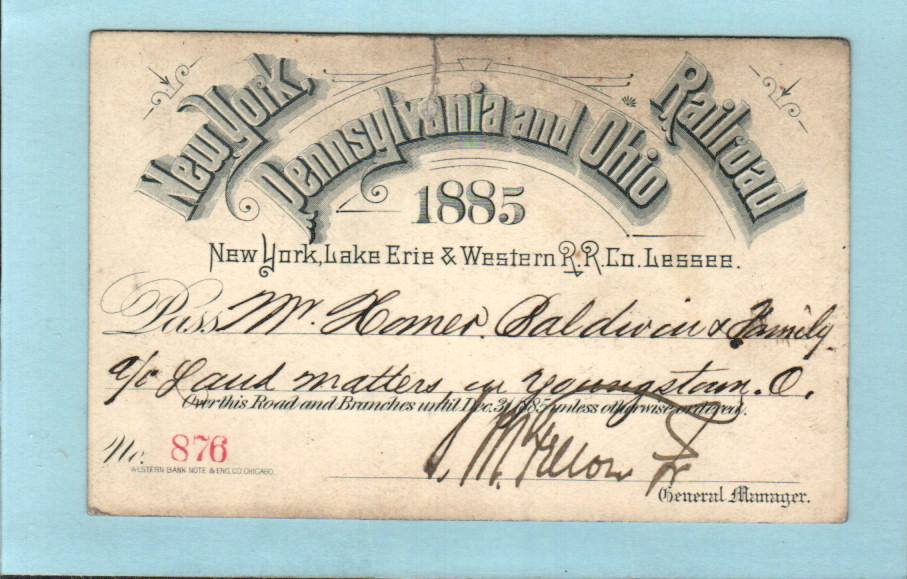 New York, Pennsylvania and Ohio Railroad
1885
New York, Lake Erie & Western R.R. Co. Lessee.
Pass Mr. Homer Baldwin & Family
a/c Land matters in Youngstown. O.
Over this Road and Branches until Dec. 31, 1885 unless otherwise ordered.
No. 876
WESTERN BANK NOTE & ENG. CO. CHICAGO.
General Manager.